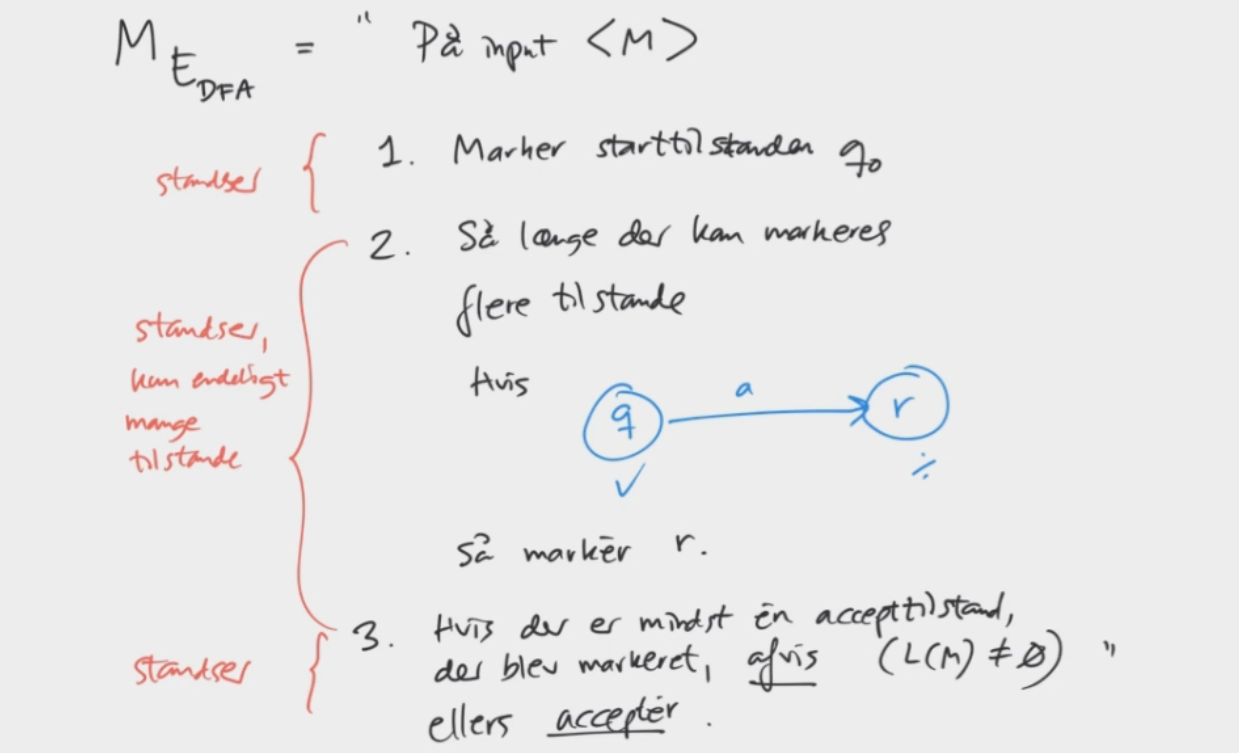 M E_DFA = " På input <M>
standser { 1. Marker starttilstanden q₀
2. Så længe der kan markeres
flere tilstande
standser,
kun endeligt
mange
tilstande
Hvis q a r
✓ ÷
så markér r.
standser { 3. Hvis der er mindst én accepttilstand,
der blev markeret, afvis (L(M) ≠ Ø) "
ellers acceptér.